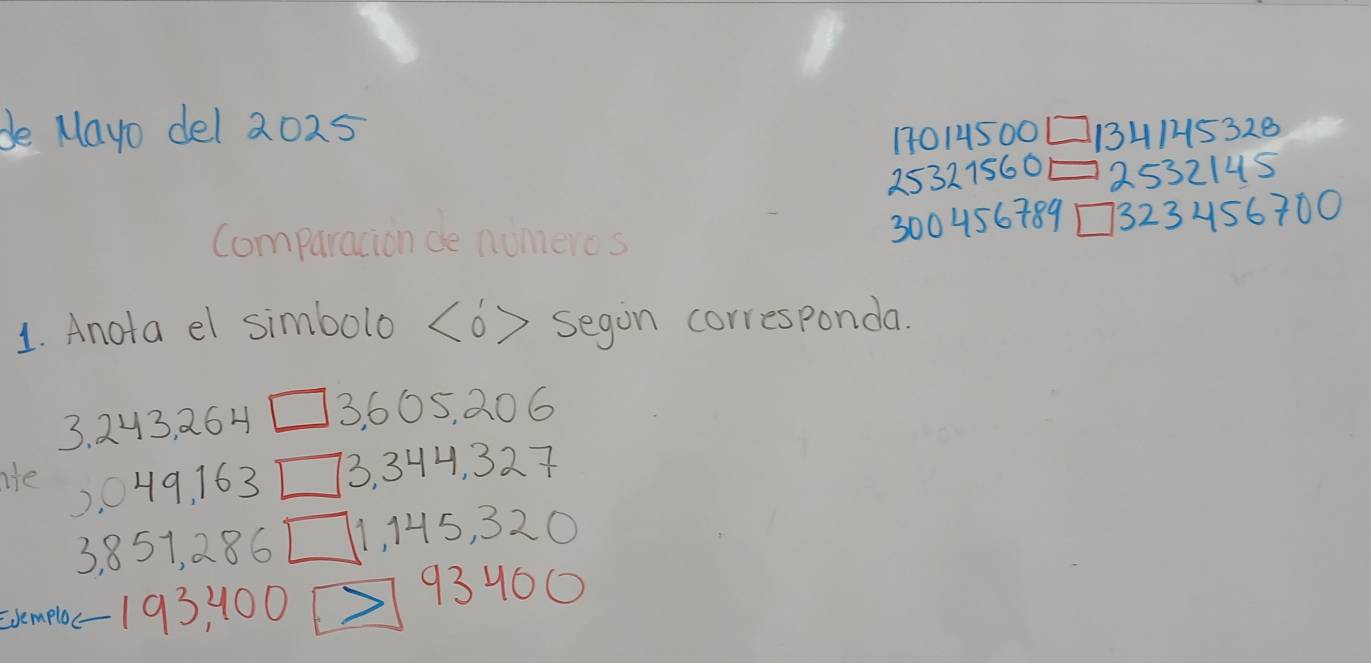 de Mayo del 2025
17014500 □ 134145328
25321560 □ 2532145
300456789 □ 323456700
Comparación de números
1. Anota el simbolo < ó > según corresponda.
3.243,264 □ 3,605,206
nte
3,049,163 □ 3,344,327
3,851,286 □ 1,145,320
Ejemplo← 193,400 > 93400